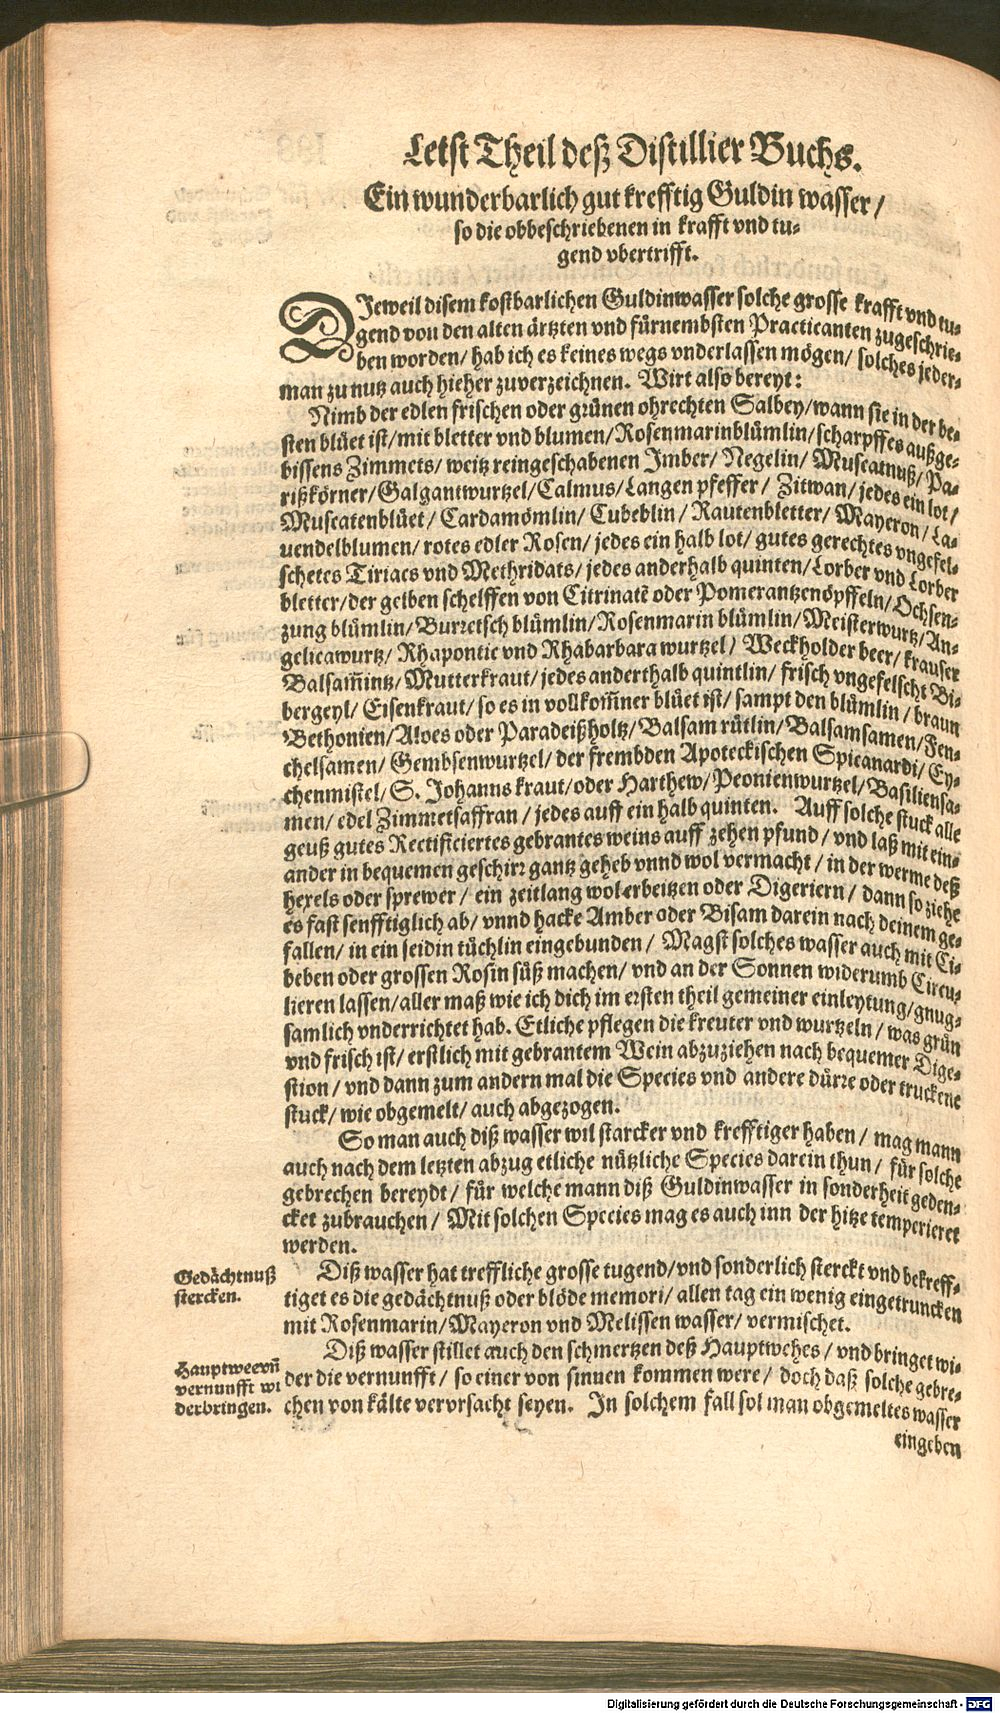 Letst Theil deß Distillier Buchs.
Ein wunderbarlich gut krefftig Guldin wasser /
so die obbeschriebenen in krafft vnd tu-
gend vbertrifft.
DJeweil disem kostbarlichen Guldinwasser solche grosse krafft vnd tu-
gend von den alten ärtzten vnd fürnembsten Practicanten zugeschrie-
ben worden / hab ich es keines wegs vnderlassen mögen / solches jeder-
man zu nutz auch hieher zuverzeichnen. Wirt also bereyt:
Nimb der edlen frischen oder grünen ohrechten Salbey / wann sie in der be-
sten blüet ist / mit bletter vnd blumen / Rosenmarinblümlin / scharpffes außge-
bissens Zimmets / weitz reingeschabenen Jmber / Negelin / Muscatnuß / Pa-
rißkörner / Galgantwurtzel / Calmus / Langen pfeffer / Zitwan / jedes ein lot /
Muscatenblüet / Cardamömlin / Cubeblin / Rautenbletter / Mayeron / La-
uendelblumen / rotes edler Rosen / jedes ein halb lot / gutes gerechtes vngefel-
schetes Tiriacs vnd Methridats / jedes anderhalb quinten / Lorber vnd Lorber
bletter / der gelben schelffen von Citrinatē oder Pomerantzenöpffeln / Ochsen-
zung blümlin / Burretsch blümlin / Rosenmarin blümlin / Meisterwurtz / An-
gelicawurtz / Rhapontic vnd Rhabarbara wurtzel / Weckholder beer / krauser
Balsam̄intz / Mutterkraut / jedes anderthalb quintlin / frisch vngefelscht Bi-
bergeyl / Eisenkraut / so es in vollkom̄ner blüet ist / sampt den blümlin / braun
Bethonien / Aloes oder Paradeißholtz / Balsam rütlin / Balsamsamen / Fen-
chelsamen / Gembsenwurtzel / der frembden Apoteckischen Spicanardi / Ey-
chenmistel / S. Johanns kraut / oder Harthew / Peonienwurtzel / Basiliensa-
men / edel Zimmetsaffran / jedes auff ein halb quinten. Auff solche stuck alle
geuß gutes Rectificiertes gebrantes weins auff zehen pfund / vnd laß mit ein-
ander in bequemen geschirr gantz geheb vnnd wol vermacht / in der werme deß
hexels oder sprewer / ein zeitlang wol erbeitzen oder Digeriern / dann so ziehe
es fast senfftiglich ab / vnnd hacke Amber oder Bisam darein nach deinem ge-
fallen / in ein seidin tüchlin eingebunden / Magst solches wasser auch mit Ci-
beben oder grossen Rosin süß machen / vnd an der Sonnen widerumb Circu-
lieren lassen / aller maß wie ich dich im ersten theil gemeiner einleytung / gnug-
samlich vnderrichtet hab. Etliche pflegen die kreuter vnd wurtzeln / was grün
vnd frisch ist / erstlich mit gebrantem Wein abzuziehen nach bequemer Dige-
stion / vnd dann zum andern mal die Species vnd andere dürre oder truckene
stuck / wie obgemelt / auch abgezogen.
So man auch diß wasser wil starcker vnd krefftiger haben / mag mann
auch nach dem letzten abzug etliche nützliche Species darein thun / für solche
gebrechen bereydt / für welche mann diß Guldinwasser in sonderheit geden-
cket zubrauchen / Mit solchen Species mag es auch inn der hitze temperieret
werden.
Gedächtnuß
stercken.
Diß wasser hat treffliche grosse tugend / vnd sonderlich sterckt vnd bekreff-
tiget es die gedächtnuß oder blöde memori / allen tag ein wenig eingetruncken
mit Rosenmarin / Mayeron vnd Melissen wasser / vermischet.
Hauptwee vn̄
vernunfft wi
derbringen.
Diß wasser stillet auch den schmertzen deß Hauptwehes / vnd bringet wi-
der die vernunfft / so einer von sinnen kommen were / doch daß solche gebre-
chen von kälte vervrsacht seyen. Jn solchem fall sol man obgemeltes wasser
eingeben
Digitalisierung gefördert durch die Deutsche Forschungsgemeinschaft - DFG